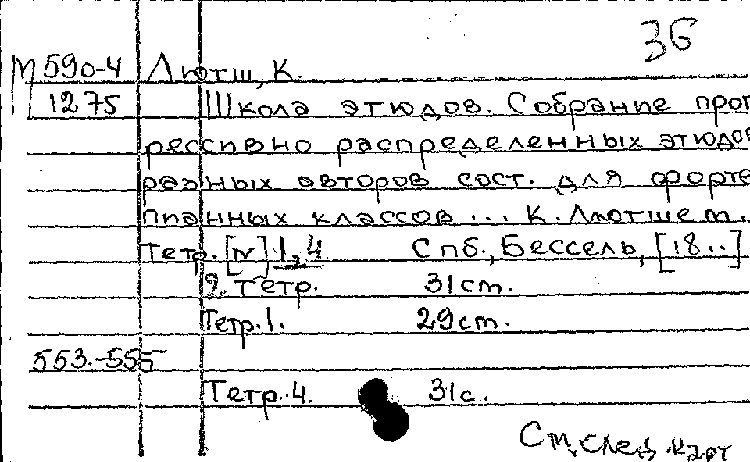 36
М 590-4 Лютш, К.
1275 Школа этюдов. Собрание прог
рессивно распределенных этюдов
разных авторов сост. для форте
пианных классов ... К. Лютшем.
Тетр. [N] 1, 4 Спб., Бессель, [18..]
2. тетр. 31 ст.
Тетр. 1. 29 ст.
553.-555
Тетр. 4. 31 с.
См. след. карт